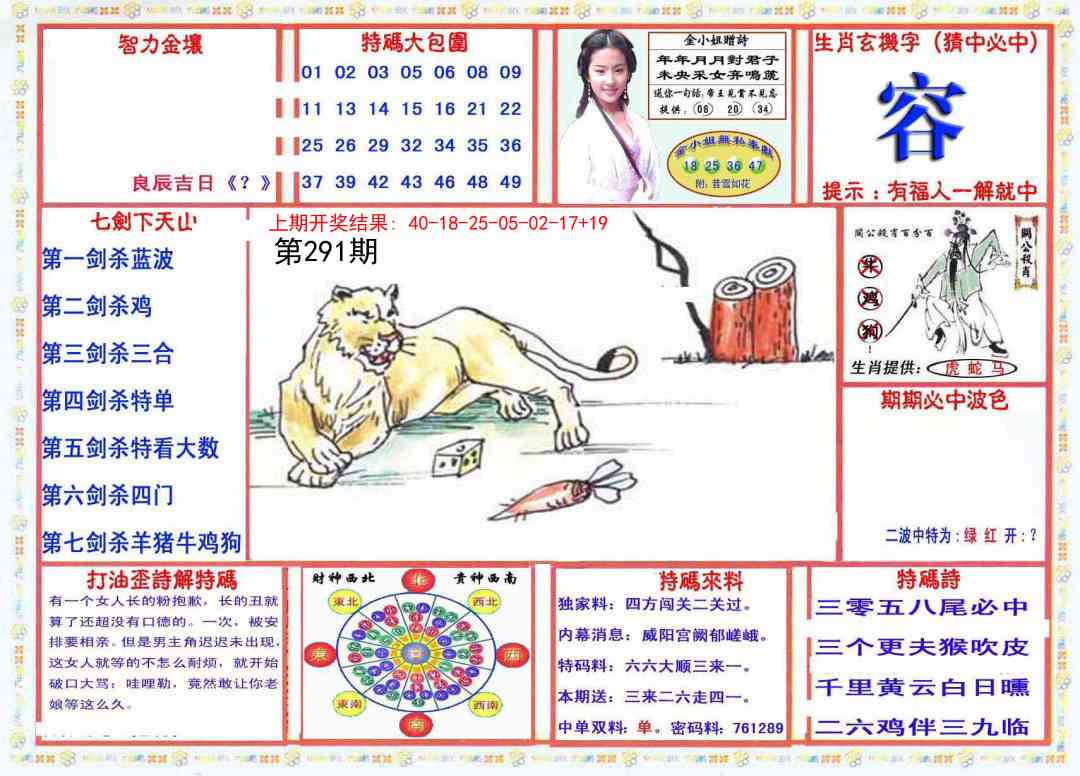 智力金壤
良辰吉日《？》
特碼大包圍
01 02 03 05 06 08 09
11 13 14 15 16 21 22
25 26 29 32 34 35 36
37 39 42 43 46 48 49
金小姐贈詩
年年月月對君子
未央采女弃鳴蓙
送你一句话：帝王見賞不見忘
提供：06 20 34
金小姐無私奉獻
18 25 36 47
附：昔雪如花
生肖玄機字（猜中必中）
容
提示：有福人一解就中
七劍下天山
第一剑杀蓝波
第二剑杀鸡
第三剑杀三合
第四剑杀特单
第五剑杀特看大数
第六剑杀四门
第七剑杀羊猪牛鸡狗
上期开奖结果：40-18-25-05-02-17+19
第291期
關公殺肖百分百
關公殺肖
牛
鸡
狗
！
生肖提供：虎 蛇 马
期期必中波色
二波中特为：绿 红 开：？
打油歪詩解特碼
有一个女人长的粉抱歉，长的丑就
算了还超没有口德的。一次，被安
排要相亲。但是男主角迟迟未出现，
这女人就等的不怎么耐烦，就开始
破口大骂：哇哩勒，竟然敢让你老
娘等这么久。
財神西北 貴神西南
北
東北 西北
東 西
東南 西南
南
特碼來料
独家料：四方闯关二关过。
内幕消息：威阳宫阙郁嵯峨。
特码料：六六大顺三来一。
本期送：三来二六走四一。
中单双料：单。密码料：761289
特碼詩
三零五八尾必中
三个更夫猴吹皮
千里黄云白日曛
二六鸡伴三九临